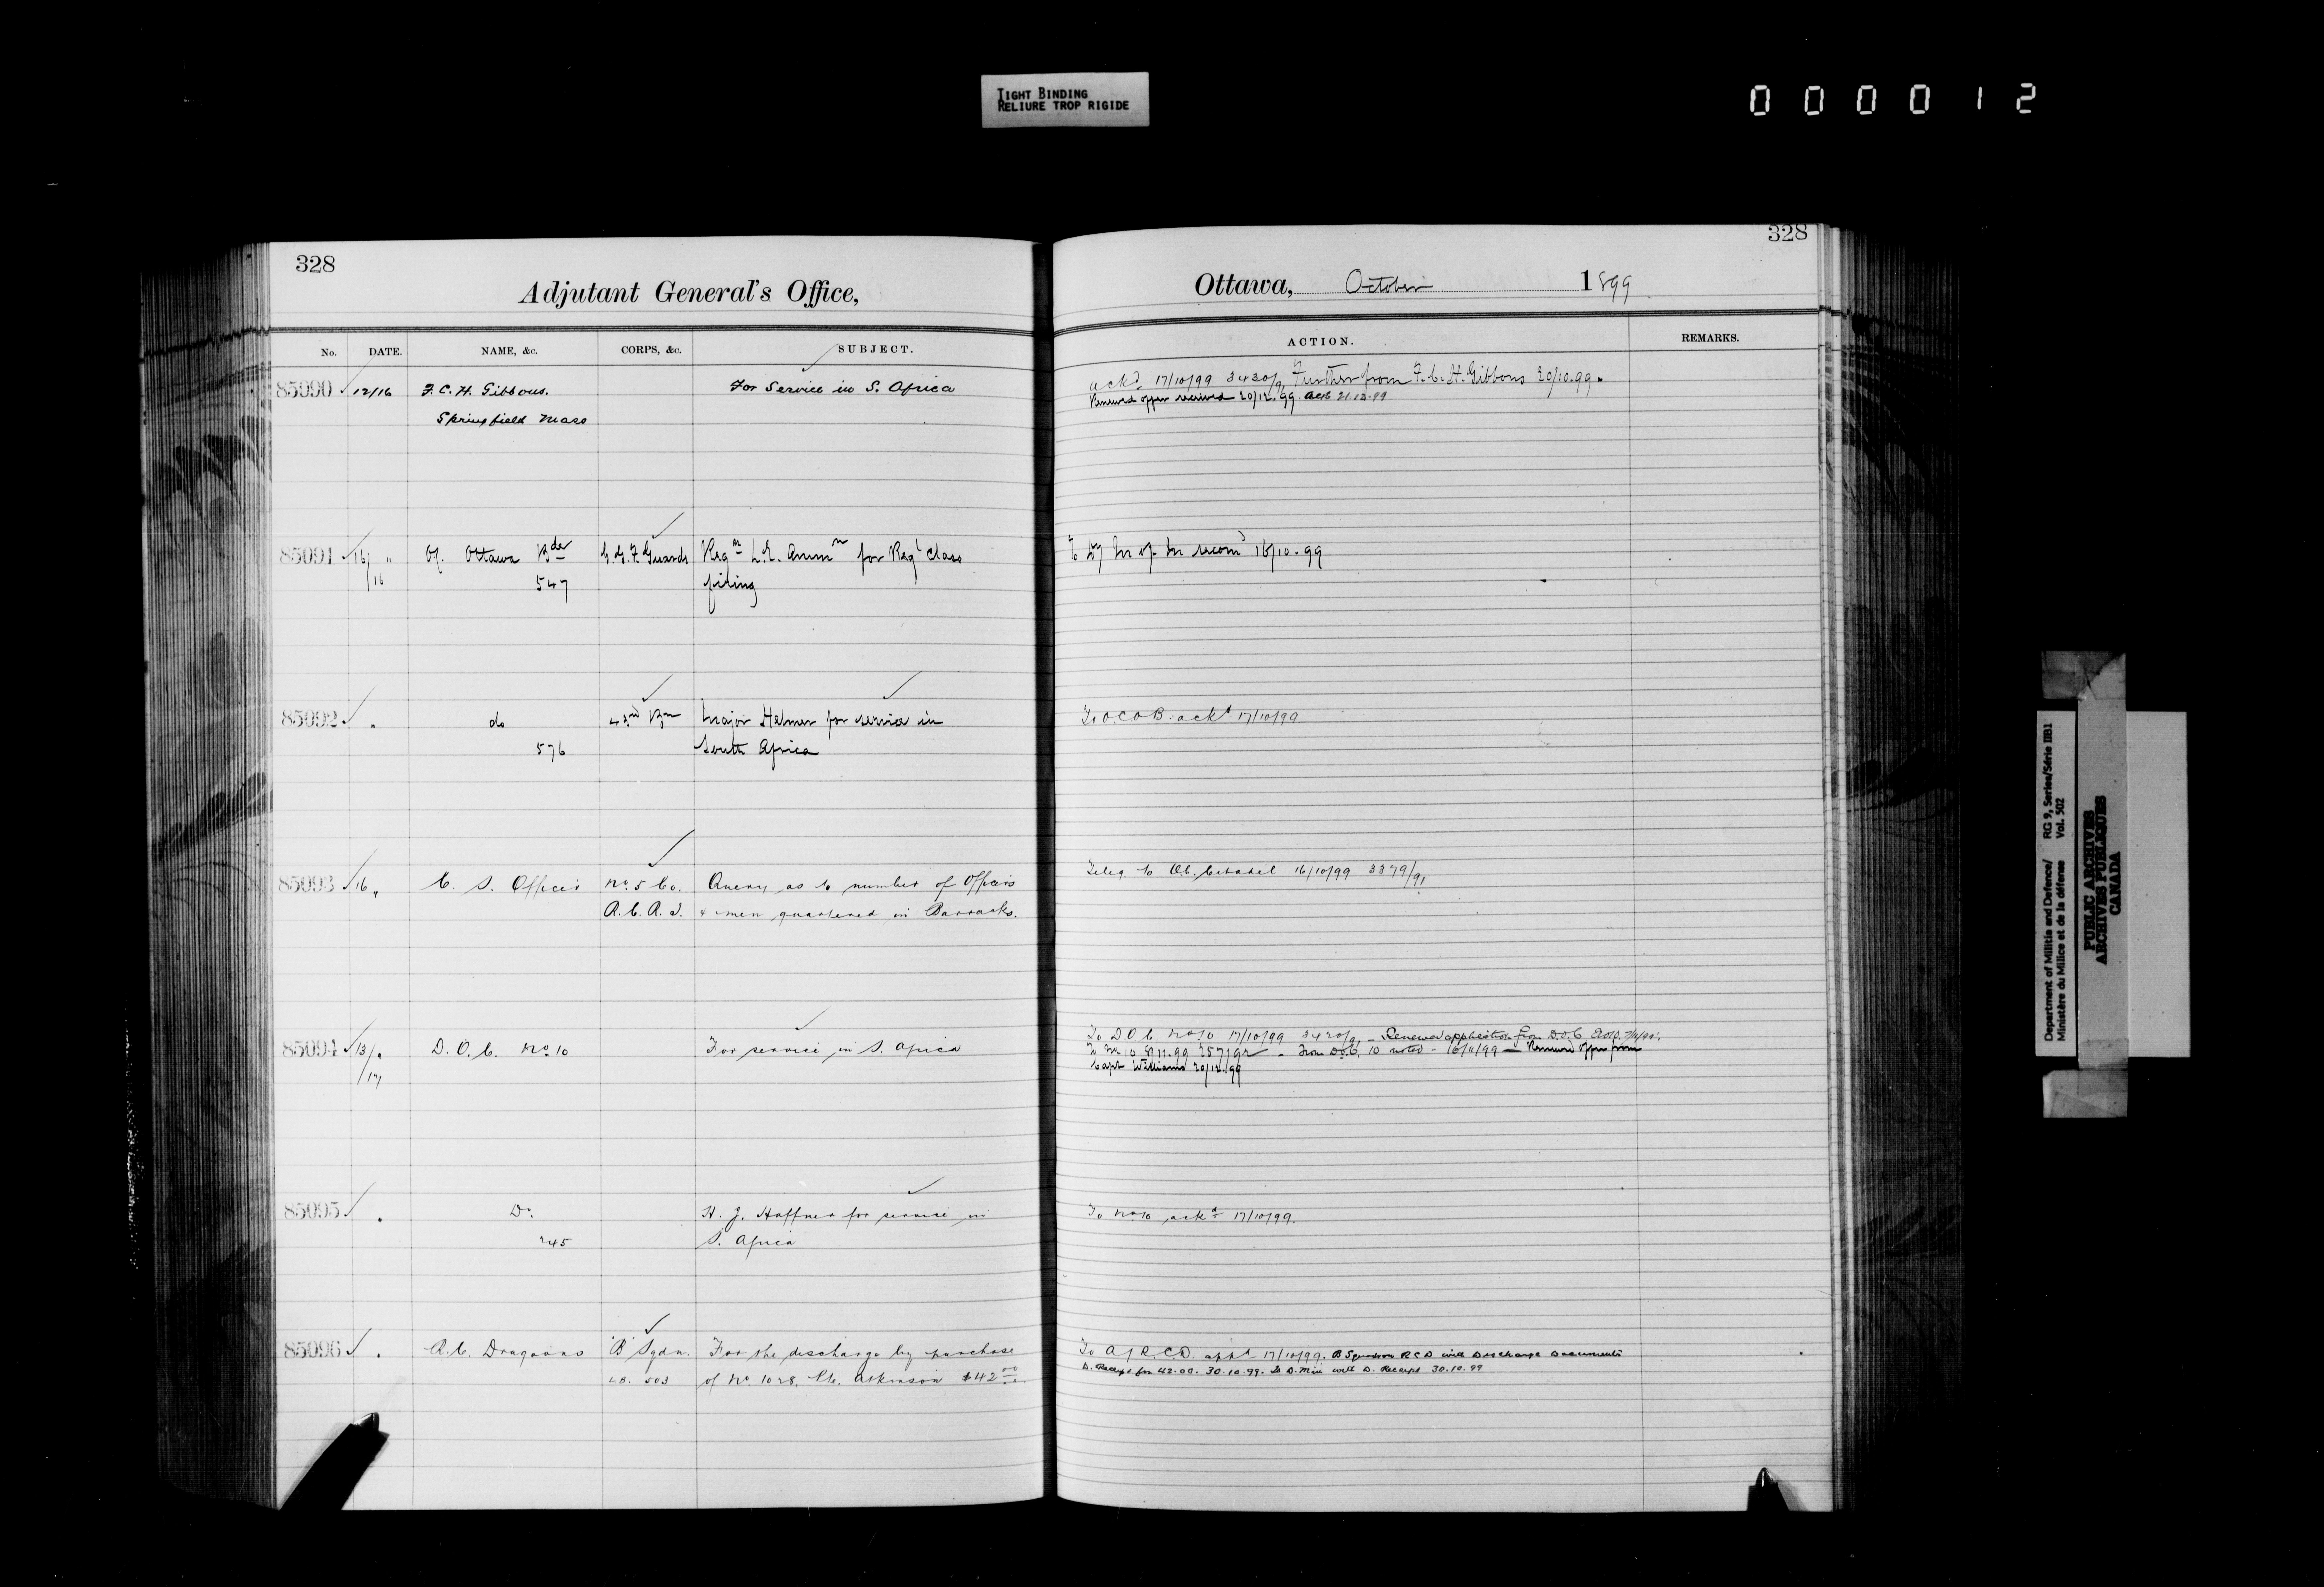 TIGHT BINDING
RELIURE TROP RIGIDE
000012
328
328
Adjutant General's Office,
Ottawa, October 1899
No. DATE. NAME, &c. CORPS, &c. SUBJECT. ACTION. REMARKS.
85090 12/16 F. C. H. Gibbons. For Service in S. Africa
Springfield Mass
ackd 17/10/99 3430/91 Further from F. C. H. Gibbons 20/10.99.
Renewed offer received 20/12.99. ack 21.12.99
85091 16/16 " Of. Ottawa Bde G.G.F. Guards Regn L.E. Ammn for Regl Class
547 firing
16/10.99
85092 " do 43rd Bn Major Helmer for service in
576 South Africa
To O.C.O.B. ackd 17/10/99
85093 16 " C. S. Officer No. 5 Co. Query as to number of Officers
R.C.R.I. & men quartered in Barracks.
Teleg. to O.C. Citadel 16/10/99 3379/91
85094 13/17 " D.O.C. No. 10 For service in S. Africa
To D.O.C. No 10 17/10/99 3420/91 - Renewed application from D.O.C.
257/92 - From D.O.C. 10 noted - 16/11/99 - Renewed offer from
Capt Williams 20/12.99
85095 " Do. H. J. Haffner for service in
245 S. Africa
To No 10 ackd 17/10/99.
85096 " R.C. Dragoons 'B' Sqdn. For the discharge by purchase
503 of No. 1028, Pte. Atkinson $42.00
To R.C.D. 17/10/99. B Squadron R C D with Discharge Documents
D. Receipt for 42.00. 30.10.99. To D. Min with D. Receipt 30.10.99
Department of Militia and Defence/ RG 9, Series/Série IIB1
Ministère du Milice et de la défense Vol. 502
PUBLIC ARCHIVES
ARCHIVES PUBLIQUES
CANADA